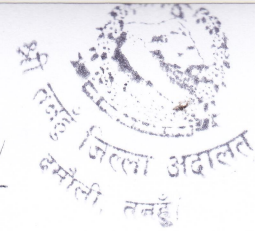 श्री तनहुँ जिल्ला अदालत
दमौली, तनहुँ